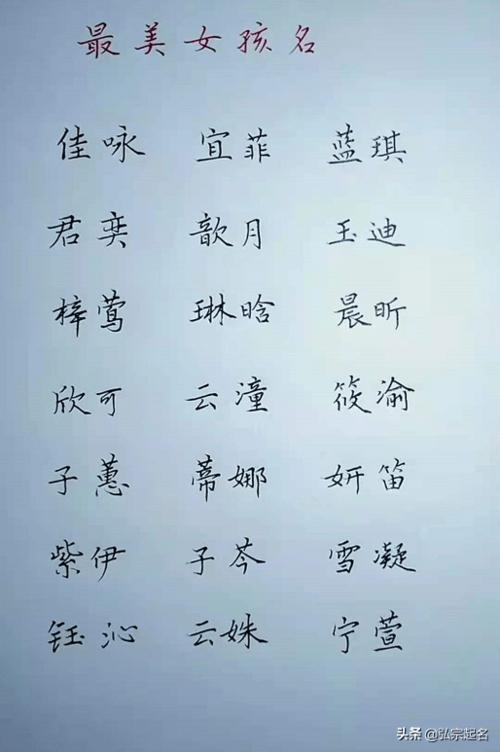 最美女孩名
佳咏 宜菲 蓝琪
君奕 歆月 玉迪
梓莺 琳晗 晨昕
欣可 云潼 筱渝
子蕙 蒂娜 妍笛
紫伊 子芩 雪凝
钰沁 云姝 宁萱
头条 @弘宗起名